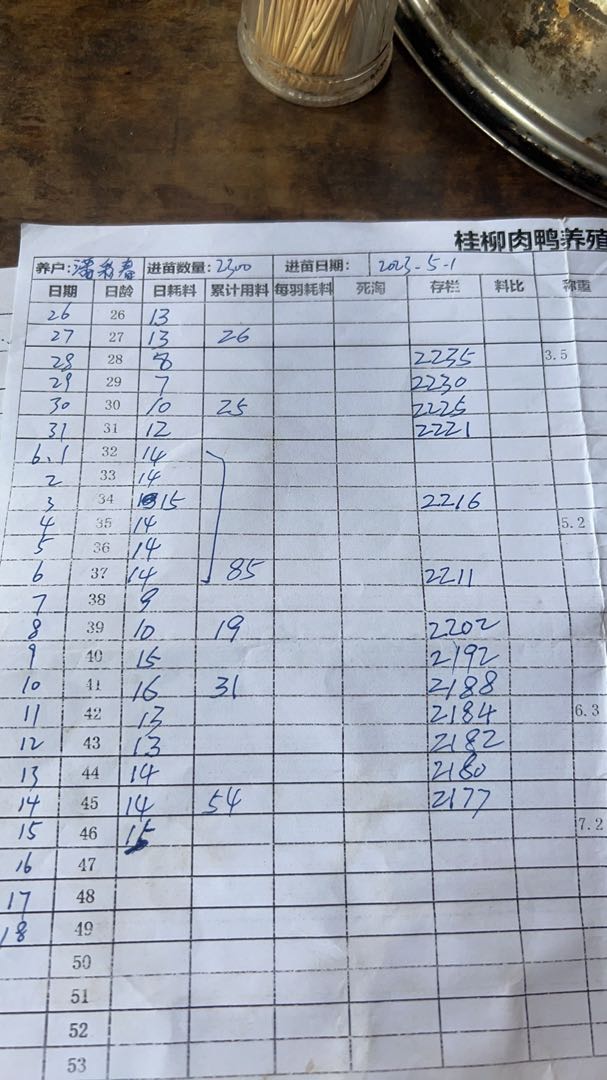 桂柳肉鸭养殖
养户: 进苗数量: 2300 进苗日期: 2023-5-1
日期 日龄 日耗料 累计用料 每羽耗料 死淘 存栏 料比 称重
26 26 13
27 27 13 26
28 28 8 2235 3.5
29 29 7 2230
30 30 10 25 2225
31 31 12 2221
6.1 32 14
2 33 14
3 34 15 2216
4 35 14 5.2
5 36 14
6 37 14 85 2211
7 38 9
8 39 10 19 2202
9 40 15 2192
10 41 16 31 2188
11 42 13 2184 6.3
12 43 13 2182
13 44 14 2180
14 45 14 54 2177
15 46 15 7.2
16 47
17 48
18 49
50
51
52
53